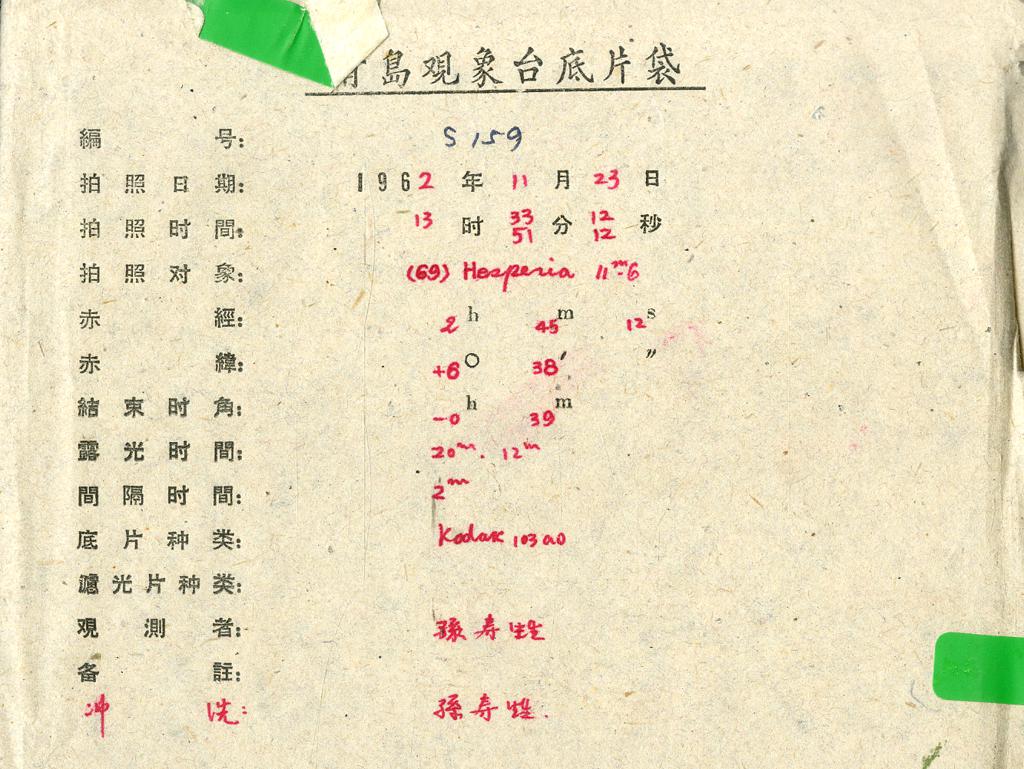 青島观象台底片袋
編号: S 159
拍照日期: 1962年11月23日
拍照时間: 13时33分12秒
51 12
拍照对象: (69) Hesperia 11ᵐ.6
赤經: 2h 45m 12s
赤緯: +6° 38′ ″
結束时角: -0h 39m
露光时間: 20ᵐ. 12ᵐ
間隔时間: 2ᵐ
底片种类: Kodak 103aO
濾光片种类:
观測者: 孫寿
备註:
冲洗: 孫寿